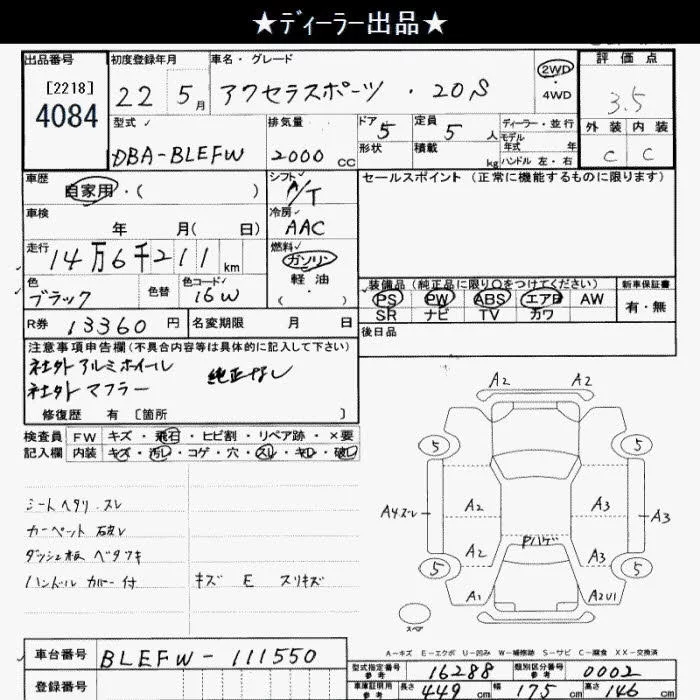 ★ディーラー出品★
出品番号 初度登録年月 車名・グレード 2WD 評価点
[2218] 22 5月 アクセラスポーツ・20S 4WD 3.5
4084 型式 排気量 ドア 5 定員 5人 ディーラー・並行 外装 内装
DBA-BLEFW 2000CC 形状 積載 kg モデル年式 年 C C
ハンドル 左・右
車歴 自家用・( ) シフト A/T セールスポイント (正常に機能するものに限ります)
車検 年 月( 日) 冷房 AAC
走行 14万6千211km 燃料 ガソリン
軽油
( )
色 ブラック 色替 色コード 16W 装備品 (純正品に限り○をつけてください) 新車保証書
PS PW ABS エアB AW 有・無
SR ナビ TV カワ
R券 13360円 名変期限 月 日 後日品
注意事項申告欄(不具合内容等は具体的に記入して下さい)
社外アルミホイール 純正なし
社外マフラー
修復歴 有 [箇所 ]
検査員 FW キズ・飛石・ヒビ割・リペア跡・×要
記入欄 内装 キズ・汚レ・コゲ・穴・スレ・キレ・破レ
シートヘタリ スレ
カーペット破レ
ダッシュ板ベタツキ
ハンドルカバー付 キズ E スリキズ
A2 A2
5 5
A2 A3
A4スレ A3
Pハゲ
A2 A3
5 5
A1 A2U1
スペア
A-キズ E-エクボ U-凹み W-補修跡 S-サビ C-腐食 XX-交換済
車台番号 BLEFW-111550
型式指定番号 参考 16288 類別区分番号 参考 0002
登録番号
車庫証明用 参考 長さ 449cm 幅 175cm 高さ 146cm